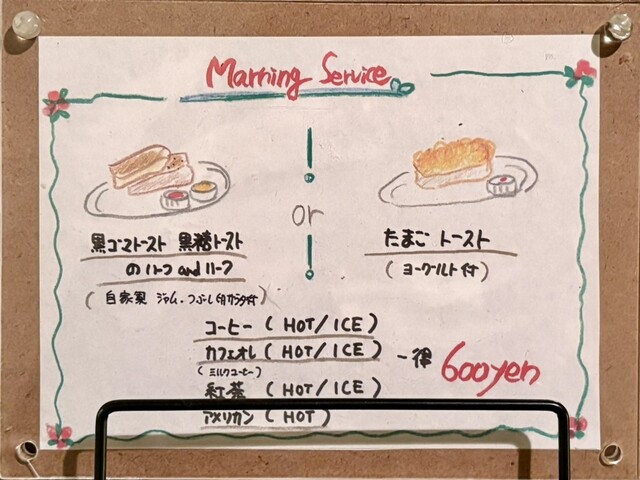 Marning Service
黒ゴマトースト 黒糖トースト
のハーフ and ハーフ
(自家製 ジャム・つぶし卵サラダ付)
or
たまご トースト
(ヨーグルト付)
コーヒー (HOT/ICE)
カフェオレ (HOT/ICE)
(ミルクコーヒー)
紅茶 (HOT/ICE)
アメリカン (HOT)
一律 600yen